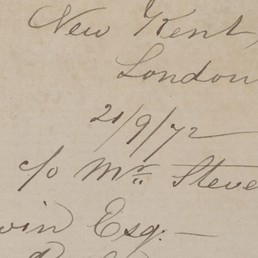 New Kent,
London
21/9/72
c/o Mr. Steve
win Esq.—